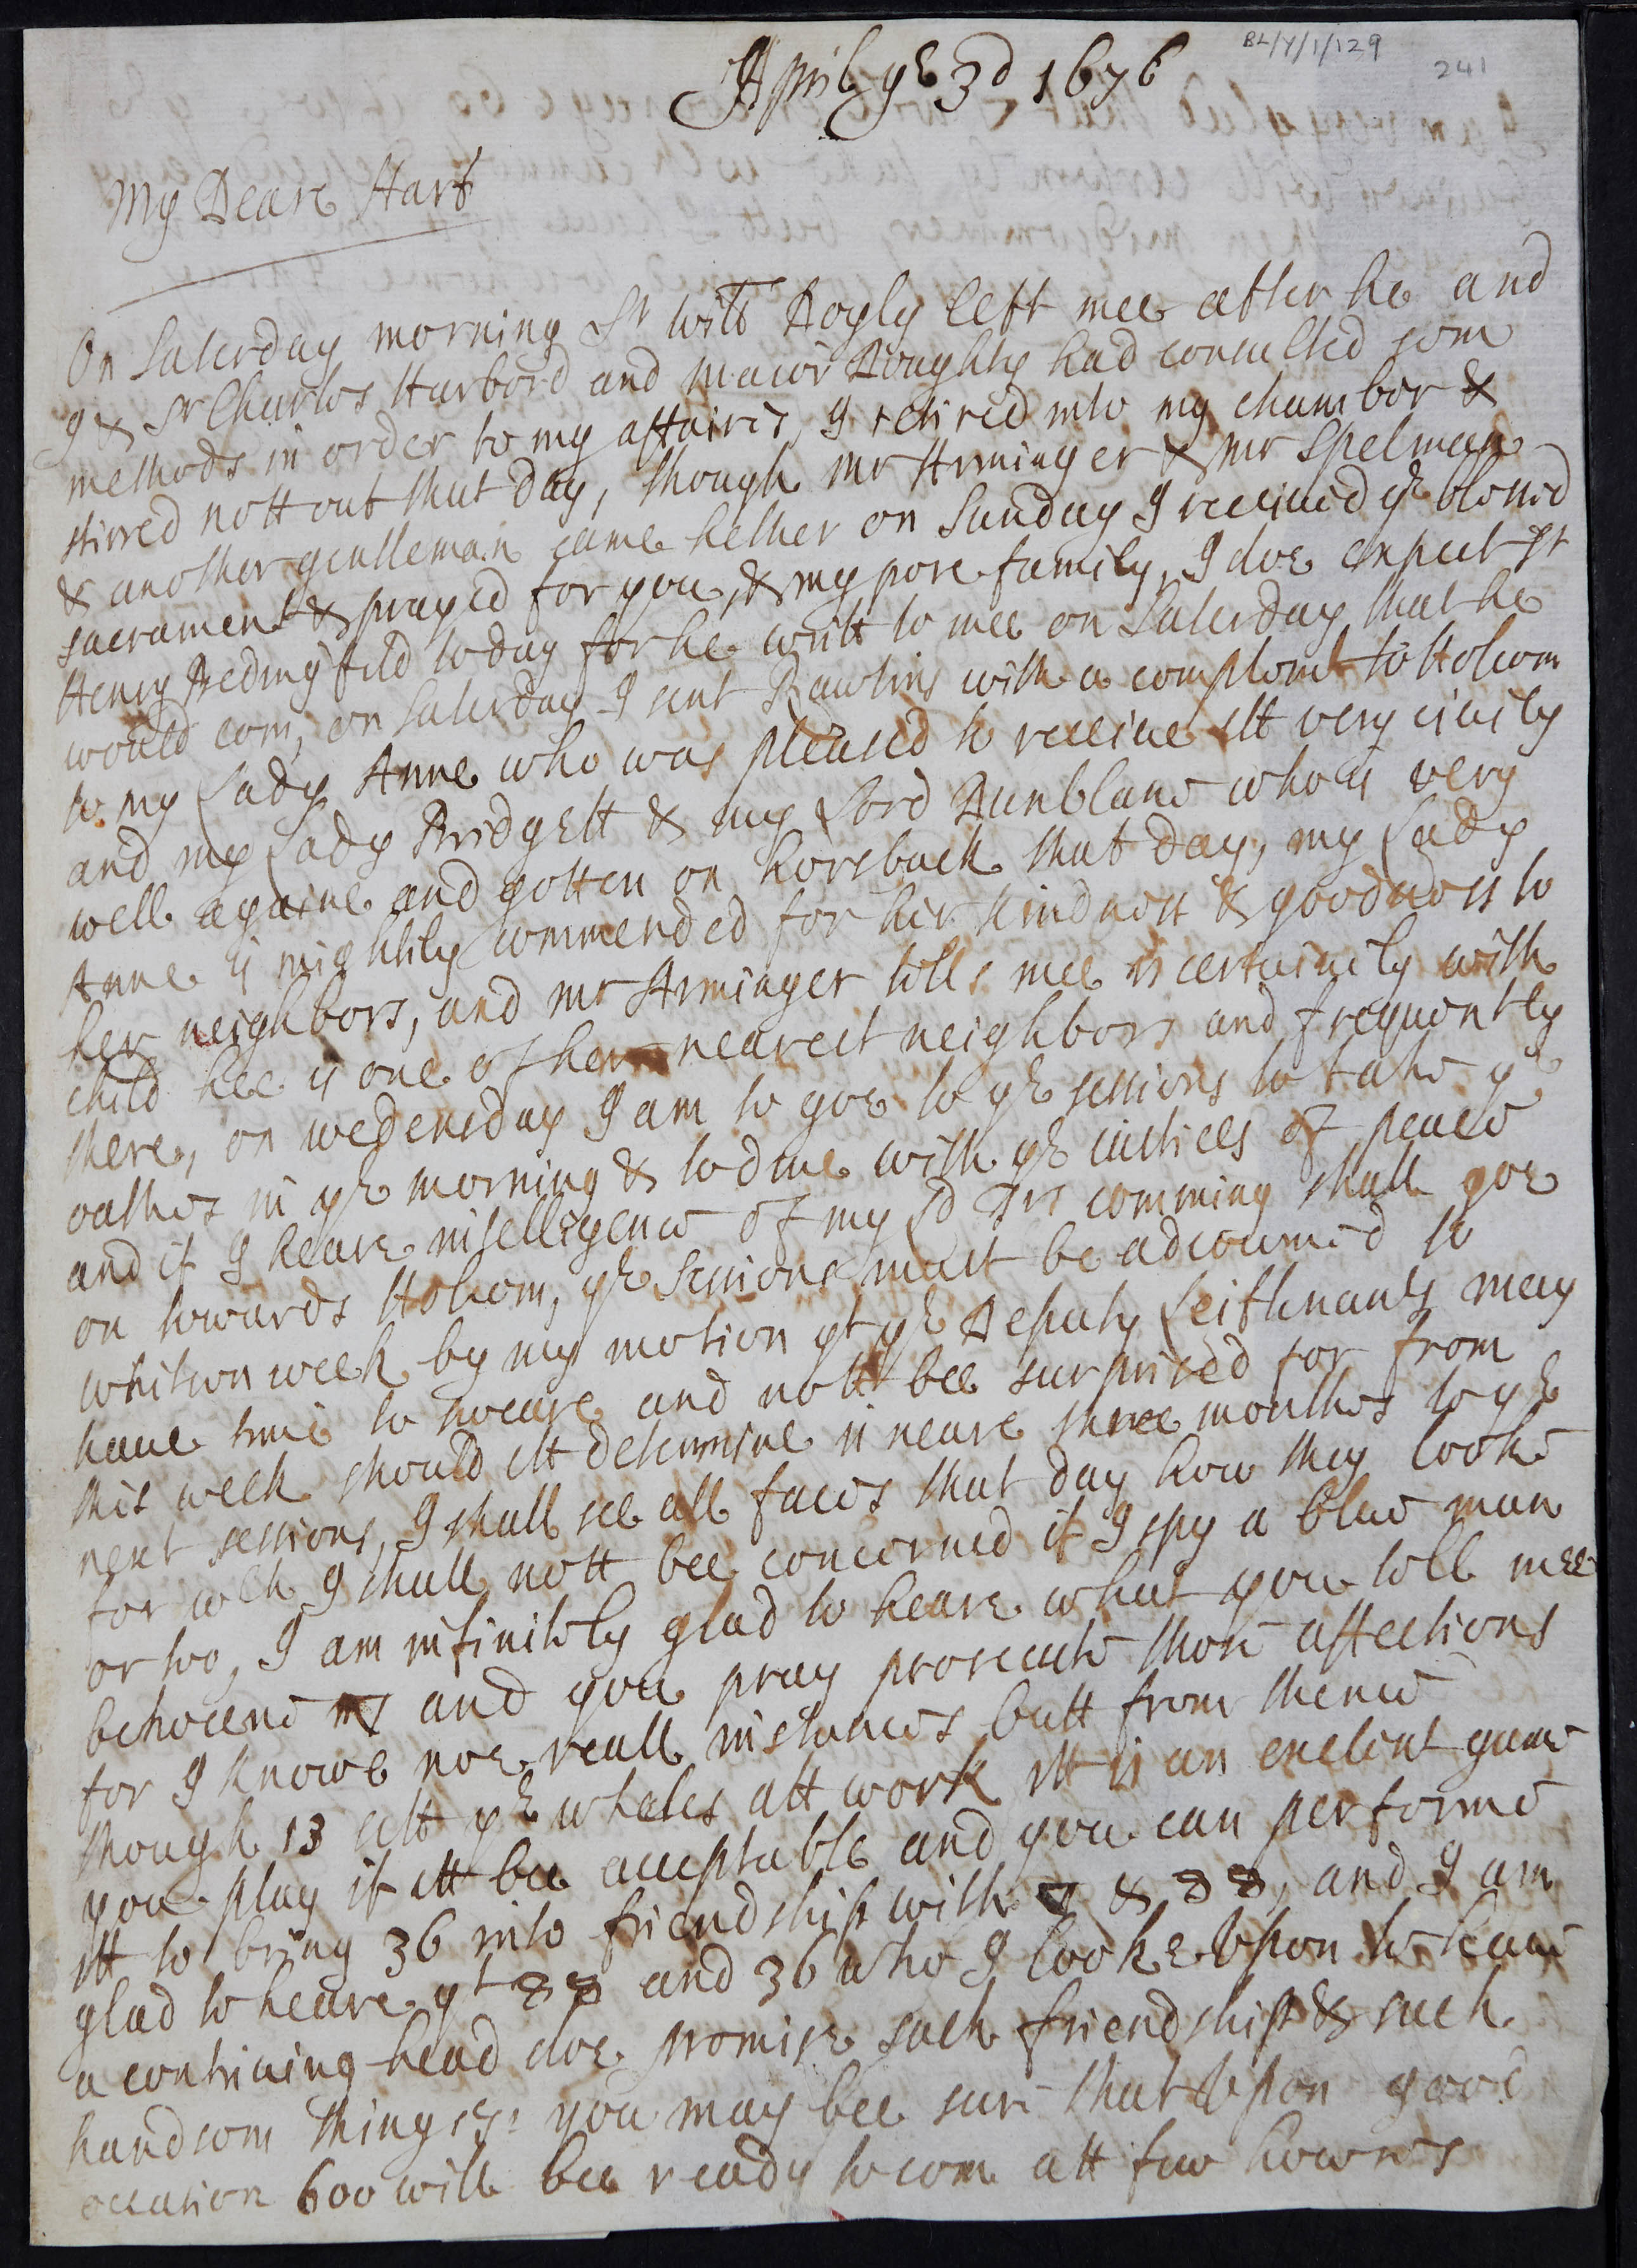 BL/Y/1/129
241
April ye 3d 1676
My Deare Hart
On Saterday morning Sr Will Doyly left mee after he and
I & Sr Charles Harbord and maior Doughty had consulted som
methods in order to my affaires, I retired into my chamber &
stirred nott out that day, though mr Arminger & mr Spelman
& another gentleman came hether on Sunday I receiued ye blessed
sacrament & prayed for you, & my pore family, I doe expect Sr
Henry Bedingfild today for he writt to mee on Saterday that he
would com, on Saterday I sent Rawlins with a complemt to Holcom
to my Lady Anne who was pleased to receiue itt very ciuily
and my Lady Bridgett & my Lord Dunblane who is very
well againe and gotten on horsback that day, my Lady
Anne is mightily commended for her kindness & goodness to
her neighbors, and mr Arminger tells mee is certainily with
child hee is one of her nearest neighbors and frequently
there, on wedensday I am to goe to ye sessions to take ye
oathes in ye morning & to dine with ye iustices of peace
and if I heare intelligence of my Ld Trs comming shall goe
on towards Holcom, ye sessions must be adiourned to
whitson week by my motion yt ye Deputy Leiftenants may
haue time to sweare and nott bee surprised for from
this week should itt determine is neare three monthes to ye
next sessions, I shall see all faces that day how they looke
for wch I shall nott bee concerned if I spy a blac man
or two, I am infinitely glad to heare what you tell mee
betweene and you pray prosecute those affections
for I knowe noe reall instances butt from thence
though 13 sett ye wheles att work itt is an exelent game
you play if itt bee acceptable and you can performe
itt to bring 36 into friendship with & and I am
glad to heare yt and 36 who I looke Upon to haue
a contriuing head doe promise such friendship & such
handsom things you may bee sure that Upon good
occation 600 will bee ready to com att few howres